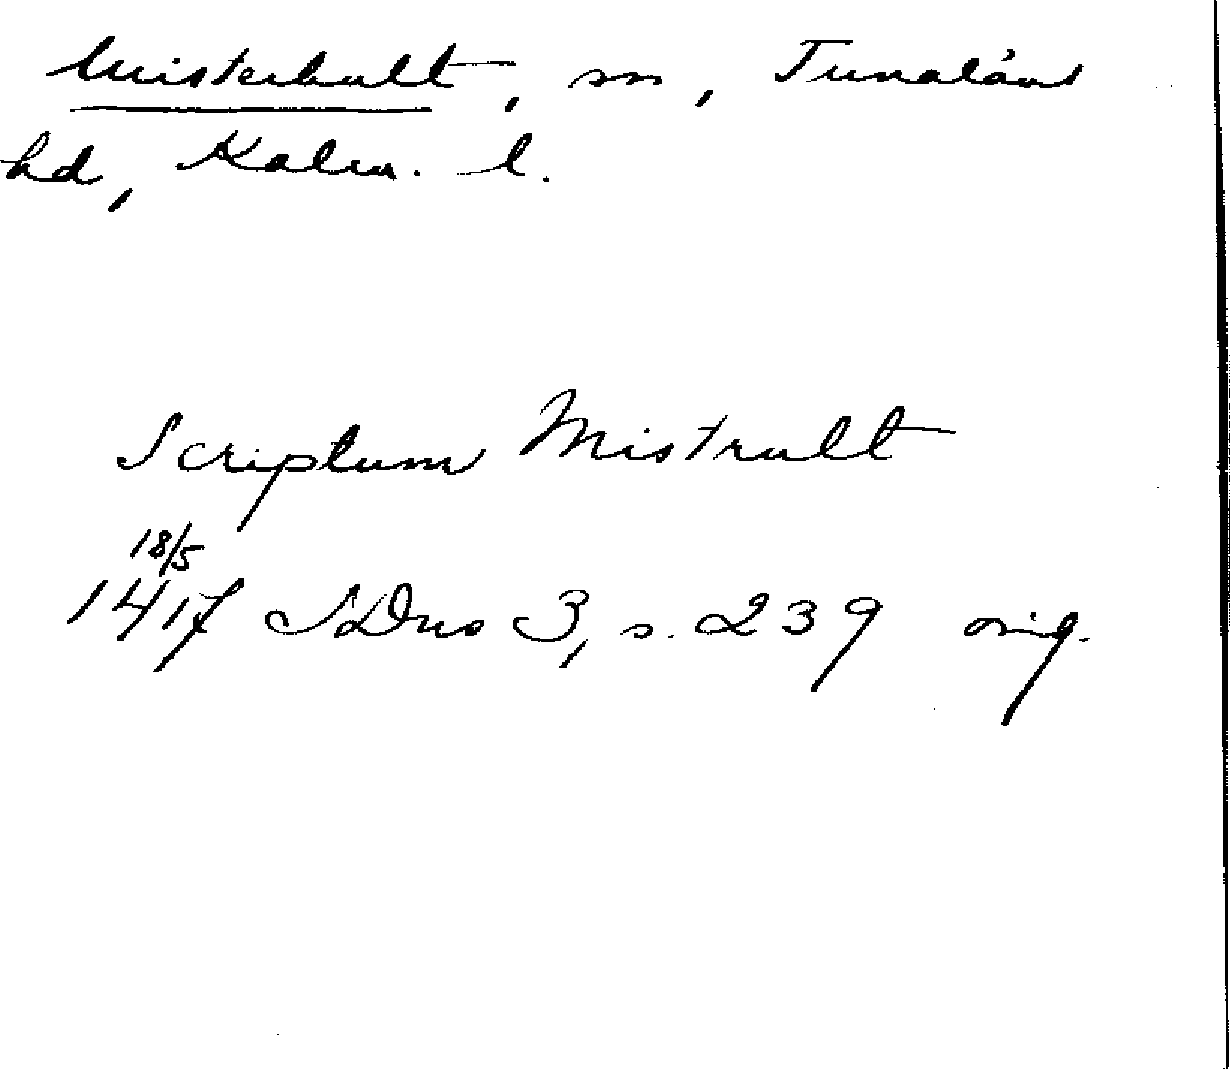 Misterhult, sn, Tunaläns
hd, Kalm. l.
Scriptum Mistrult
18/5
1417 SDns 3, s. 239 orig.